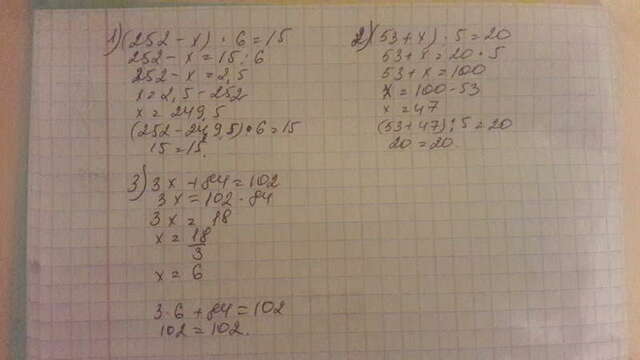 1) (252 - x) · 6 = 15
252 - x = 15 : 6
252 - x = 2,5
x = 2,5 - 252
x = 249,5
(252 - 249,5) · 6 = 15
15 = 15.
2) (53 + x) : 5 = 20
53 + x = 20 · 5
53 + x = 100
x = 100 - 53
x = 47
(53 + 47) : 5 = 20
20 = 20.
3) 3x + 84 = 102
3x = 102 - 84
3x = 18
x = 18/3
x = 6
3·6 + 84 = 102
102 = 102.